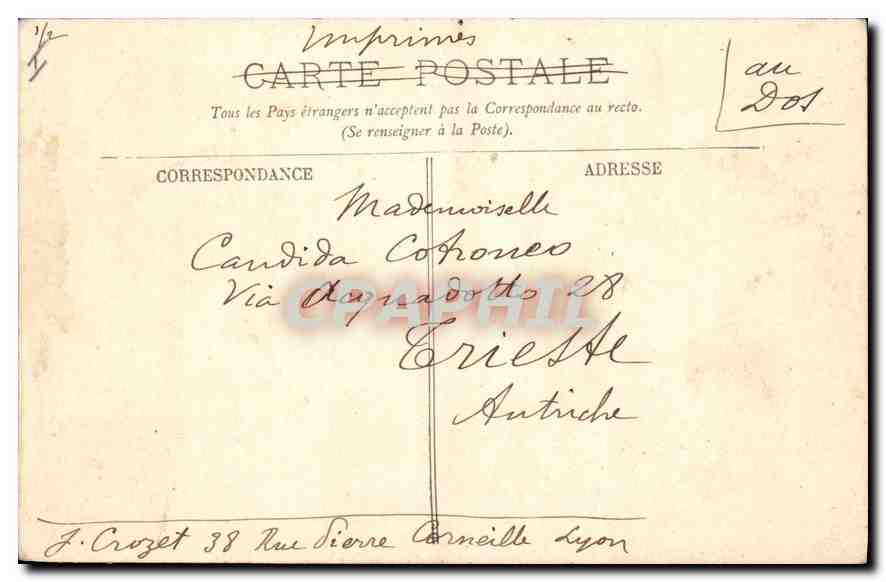 1/2
Imprimés
CARTE POSTALE
au
Dos
Tous les Pays étrangers n'acceptent pas la Correspondance au recto.
(Se renseigner à la Poste).
CORRESPONDANCE
ADRESSE
Mademoiselle
Candida Cotroneo
Via Acquadotto 28
CPAPHIL
Trieste
Autriche
J. Crozet 38 Rue Pierre Corneille Lyon